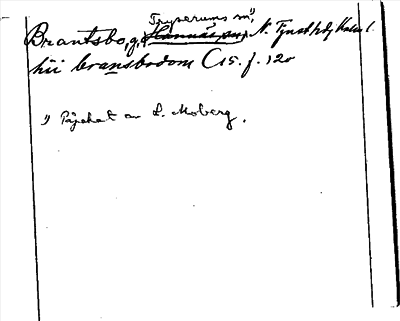 Tryserums sn¹⁾
Brantsbo, g, Hannäs sn, N. Tjust hd, Kalm l.
hii bransbodom C 15. f. 120
1) Påpekat av L. Moberg.